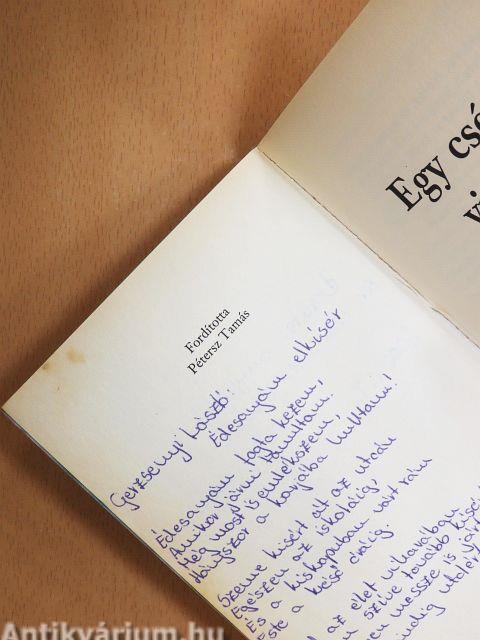 Egy csé
Fordította
Pétersz Tamás
Gerzsenyi László:
Édesanyám elkísér
Édesanyám fogta kezem,
Amikor járni tanultam.
Még most is emlékszem,
Hányszor a karjaiba hulltam!
Szeme kísért át az utcán
Egészen az iskoláig,
És a kiskapuban várt rám
Este a késő óráig.
az élet viharaiban
szíve tovább kísér
messze is
Antikvárium.hu